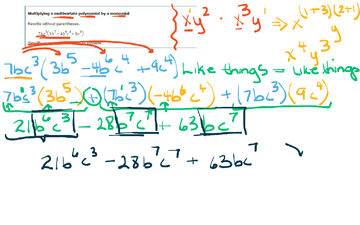 Multiplying a multivariate polynomial by a monomial
Rewrite without parentheses.
7bc³(3b⁵ - 4b⁶c⁴ + 9c⁴)
xy² · x³y¹ ⇒ x^(1+3)(2+1)
x⁴y³y
7bc³(3b⁵ - 4b⁶c⁴ + 9c⁴) Like things = Like things
7bc³(3b⁵) + (7bc³)(-4b⁶c⁴) + (7bc³)(9c⁴)
21b⁶c³ - 28b⁷c⁷ + 63bc⁷
21b⁶c³ - 28b⁷c⁷ + 63bc⁷